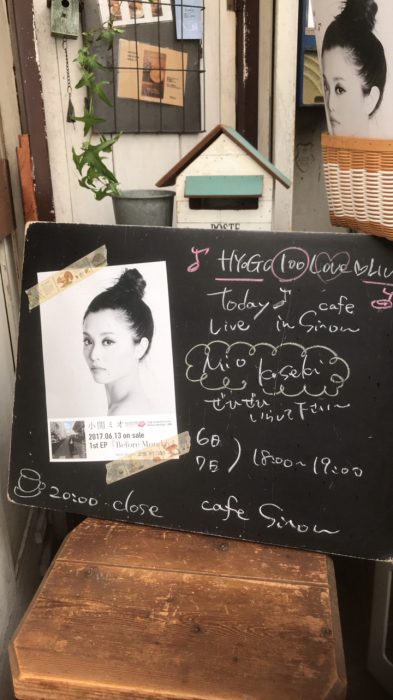 POSTE
HYOGO 100 Love ♡ Liv
Today♪ cafe
Live in Sirow
Mio Koseki
ぜひぜひ
いらして下さい〜
6日
7日 ) 18:00~19:00
小関ミオ
2017.06.13 on sale
1st EP 「Before Mo
20:00 close
cafe Sirow